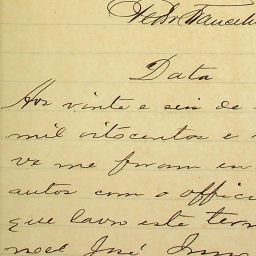 Data
Aos vinte e seis de
mil oitocentos e
ve me foram en
autos com o offici
que lavro este term
noel José